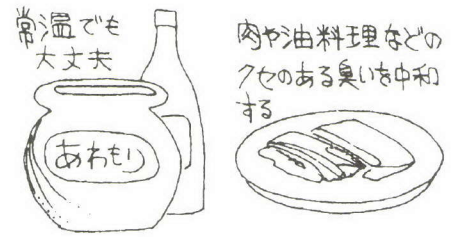 常温でも
大丈夫
あわもり
肉や油料理などの
クセのある臭いを中和
する